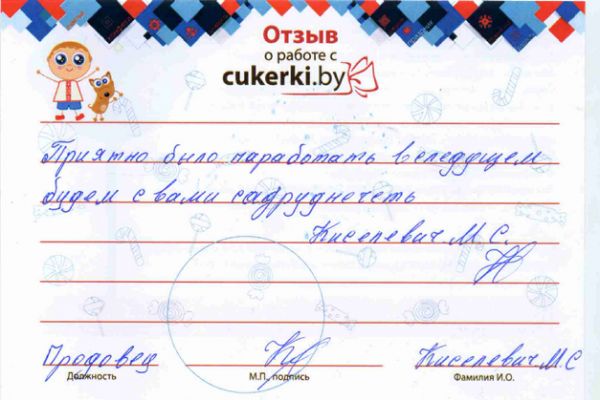 Отзыв
о работе с
cukerki.by
Приятно было наработать вследущем
будем с вами садруднечеть
Киселевич М.С.
Продовец Киселевич М.С
Должность М.П., подпись Фамилия И.О.